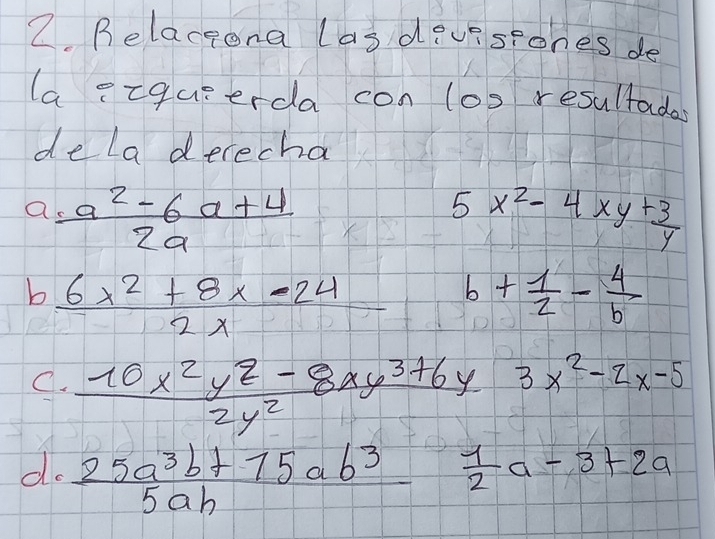 2. Relaciona las divisiones de
la izquierda con los resultados
de la derecha
a. a² - 6a + 4 / 2a    5x² - 4xy + 3/y
b 6x² + 8x - 24 / 2x    b + 1/2 - 4/b
c. 10x²y² - 8xy³ + 6y / 2y²    3x² - 2x - 5
d. 25a³b + 15ab³ / 5ab    1/2 a - 3 + 2a